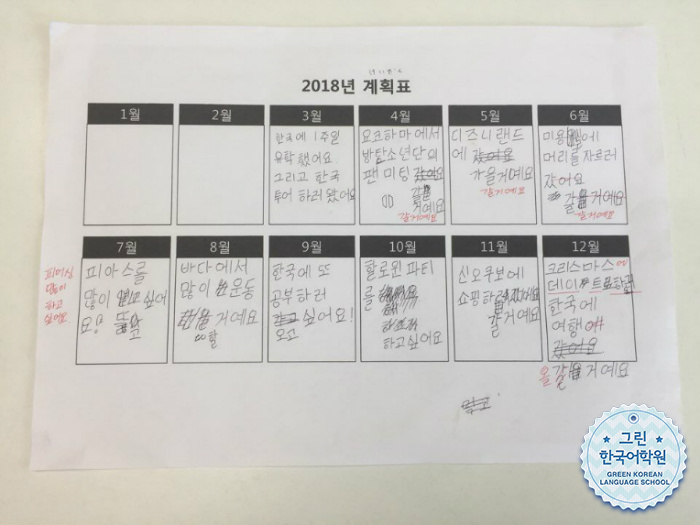 2018년 계획표
1월
2월
3월
4월
5월
6월
한국에 1주일
유학했어요.
그리고 한국
투어 하러 왔어요
요코하마에서
방탄소년단의
팬 미팅 갔어요
갈
거예요
갈거예요
디즈니랜드
에 갔어요
갈거예요
갈거예요
미용실에
머리를 자르러
갔어요
갈 거예요
갈거예요
7월
8월
9월
10월
11월
12월
피아스를
많이 싶어
요!
하고
싶어요
바다에서
많이 운동
거예요
할
한국에 또
공부하러
오고 싶어요!
할로윈 파티
를
하고 싶어요
신오쿠보에
쇼핑하러
갈 거예요
크리스마스
데이트로
한국에
여행
갔어요
올 갈 거예요
그린
한국어학원
GREEN KOREAN
LANGUAGE SCHOOL